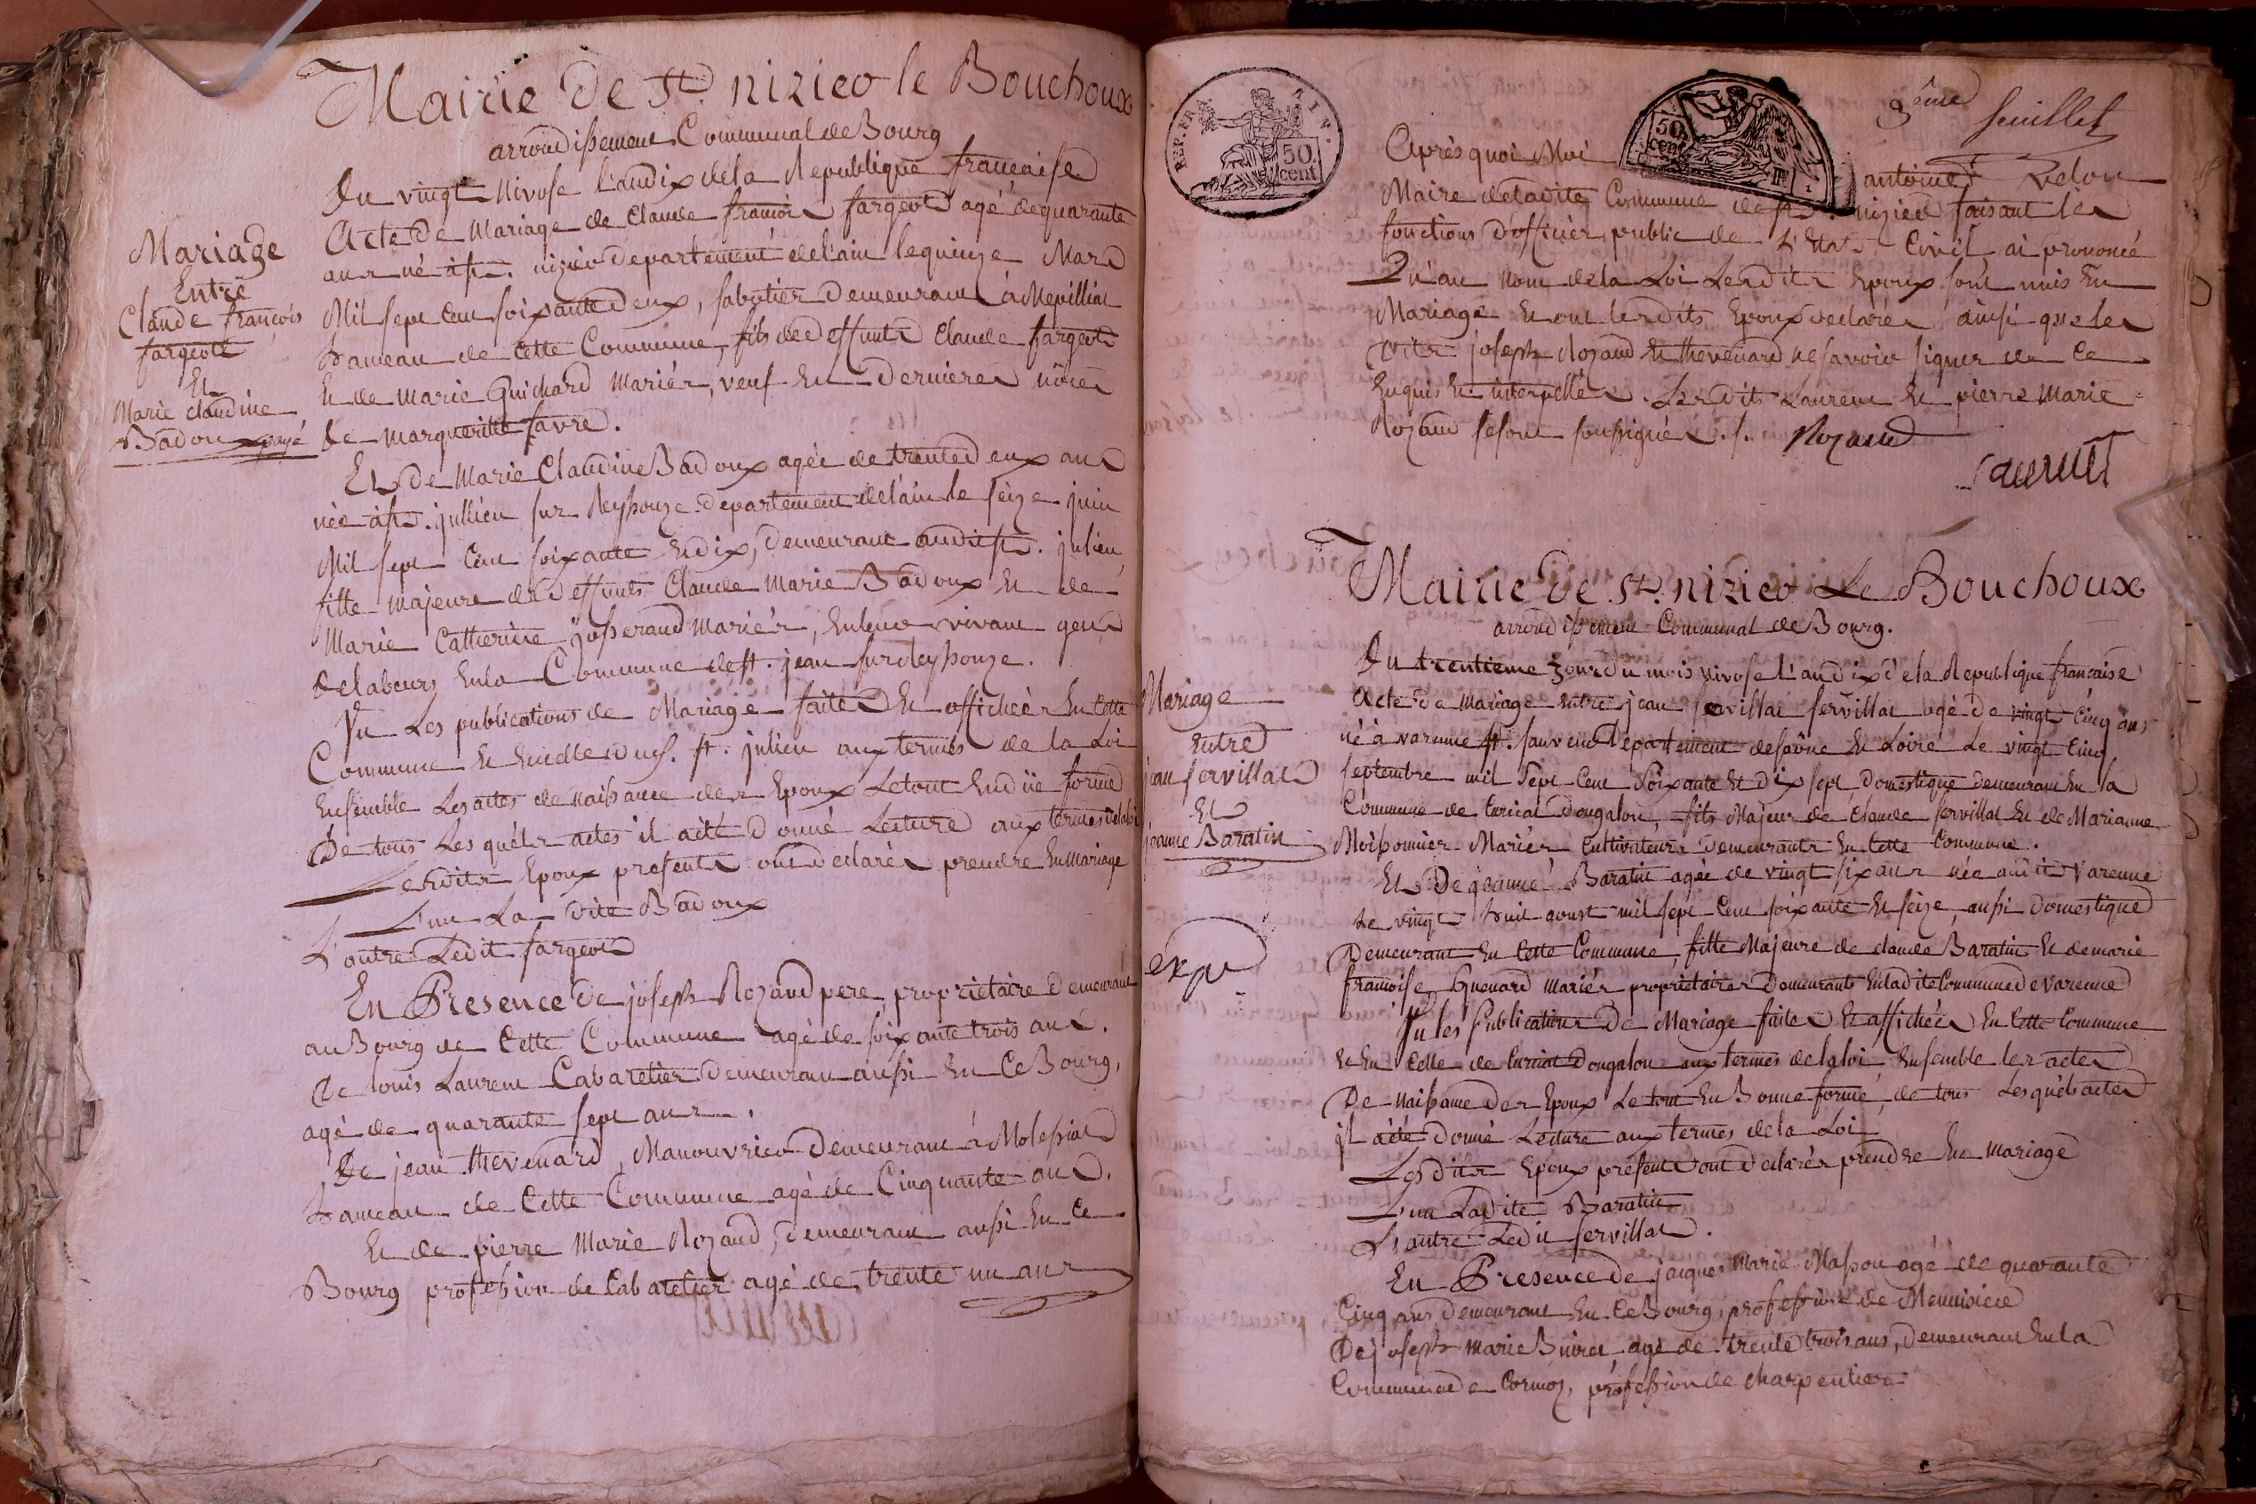 Mairie de St. nizier le Bouchoux
arrondissement Communal de Bourg
Du vingt nivose l'an dix de la Republique francaise
Acte de Mariage de Claude francois fargeot agé de quarante
ans né à St. nizier departement de l'ain le quinze Mars
Mil sept cent soixante deux, sabotier demeurant à Mepilliat
hameau de Cette Commune, fils de deffunts Claude fargeot
Et de Marie Guichard Mariés, veuf En dernieres nôces
de Marguerite favre.
Mariage
Entre
Claude francois
fargeott
Et
Marie claudine
Badoux
Et De Marie Claudine Badoux agée de trente deux ans
née à St. jullien sur Reyssouze departement de l'ain le seize juin
Mil sept Cent soixante Et dix, demeurant audit St. julien,
fille Majeure de deffunts Claude Marie Badoux Et de
Marie Catherine josserand Mariés, En leurs vivant gens
de labeurs En la Commune de St. jean sur Reyssouze.
Vu Les publications de Mariage faites Et affichées En Cette
Commune Et En Celle St. julien aux termes de la Loi
Ensemble Les actes de naissance des Epoux Le tout En düe forme
De tous Les quéls actes il a été donné Lecture aux termes de la loi
Lesdits Epoux presents ont declarés prendre En Mariage
L'un La dite Badoux
L'autre Ledit fargeot
En Presence de joseph Rozand pere, proprietaire demeurant
au Bourg de Cette Commune agé de soixante trois ans.
De louis Laurent Cabaretier demeurant aussi En Ce Bourg,
agé de quarante sept ans.
De jean thevenard, Manouvrier demeurant à Molessiat
hameau de Cette Commune agé de Cinquante ans.
Et de pierre Marie Rozand, demeurant aussi En Ce
Bourg profession de Cabaretier agé de trente un ans
REP. FRA. TIM.
50. cent
50. cent
9ème feuillet
Après quoi Moi antoine Velon
Maire de ladite Commune de St. nizier faisant les
fonctions d'officier public de L'Etat Civil ai prononcé
Qu'au nom de la Loi Lesdits Epoux sont unis En
Mariage Et ont lesdits Epoux declarés ainsi que les
dits joseph Rozand Et thevenard ne savoir signer de Ce
Enquis Et interpellés. Lesdits Laurent Et pierre Marie
Rozand se sont soussignés. Rozand
Laurent
Mairie de St. nizier Le Bouchoux
arrondissement Communal de Bourg.
Du trentieme jour du mois nivose l'an dix de la Republique francaise
Acte de Mariage entre jean servillat servillat agé de vingt Cinq ans
né à varenne St. sauveur Departement de saône Et Loire Le vingt Cinq
septembre mil Sept Cent soixante Et dix sept Domestique demeurant En la
Commune de Curciat dongalon, fils Majeur de Claude servillat Et de Marianne
Moissonnier Mariés Cultivateurs demeurants En Cette Commune.
Mariage
entre
jean servillat
Et
jeanne Baratin
Et De jeanne Baratin agée de vingt six ans née audit Varenne
Le vingt huit aoust mil sept Cent soixante Et seize, aussi Domestique
Demeurant En Cette Commune, fille Majeure de claude Baratin Et de marie
francoise Guenard Mariés proprietaires Demeurants En la dite Commune de Varenne
exp
Vu les Publications De Mariage faites Et affichées En Cette Commune
Et En Celle de Curciat Dongalon aux termes de la loi Ensemble les actes
De Naissance des Epoux Le tout En Bonne forme, de tous Les quéls actes
il a été donné Lecture aux termes de la Loi
Les dits Epoux présents ont declarés prendre En Mariage
L'un La dite Baratin
L'autre Ledit servillat.
En Presence de jacques Marie Masson agé de quarante
Cinq ans demeurant En Ce Bourg, profession de Menuisier
De joseph Marie Buiret agé de trente trois ans, demeurant En la
Commune de Cormoz, profession de charpentier